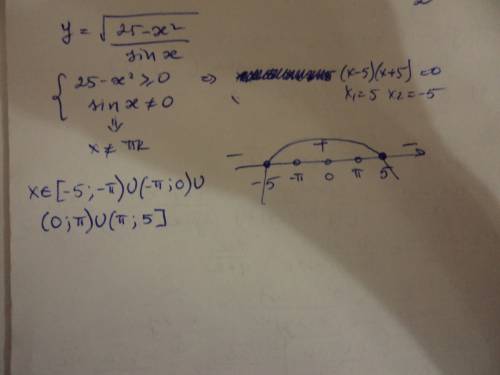 y = √(25-x²) / sin x
{ 25-x² ≥ 0 ⇒ (x-5)(x+5)=0
sin x ≠ 0 x₁=5 x₂=-5
⇓
x ≠ πk
- + -
-5 -π 0 π 5
x∈[-5;-π)∪(-π;0)∪
(0;π)∪(π;5]